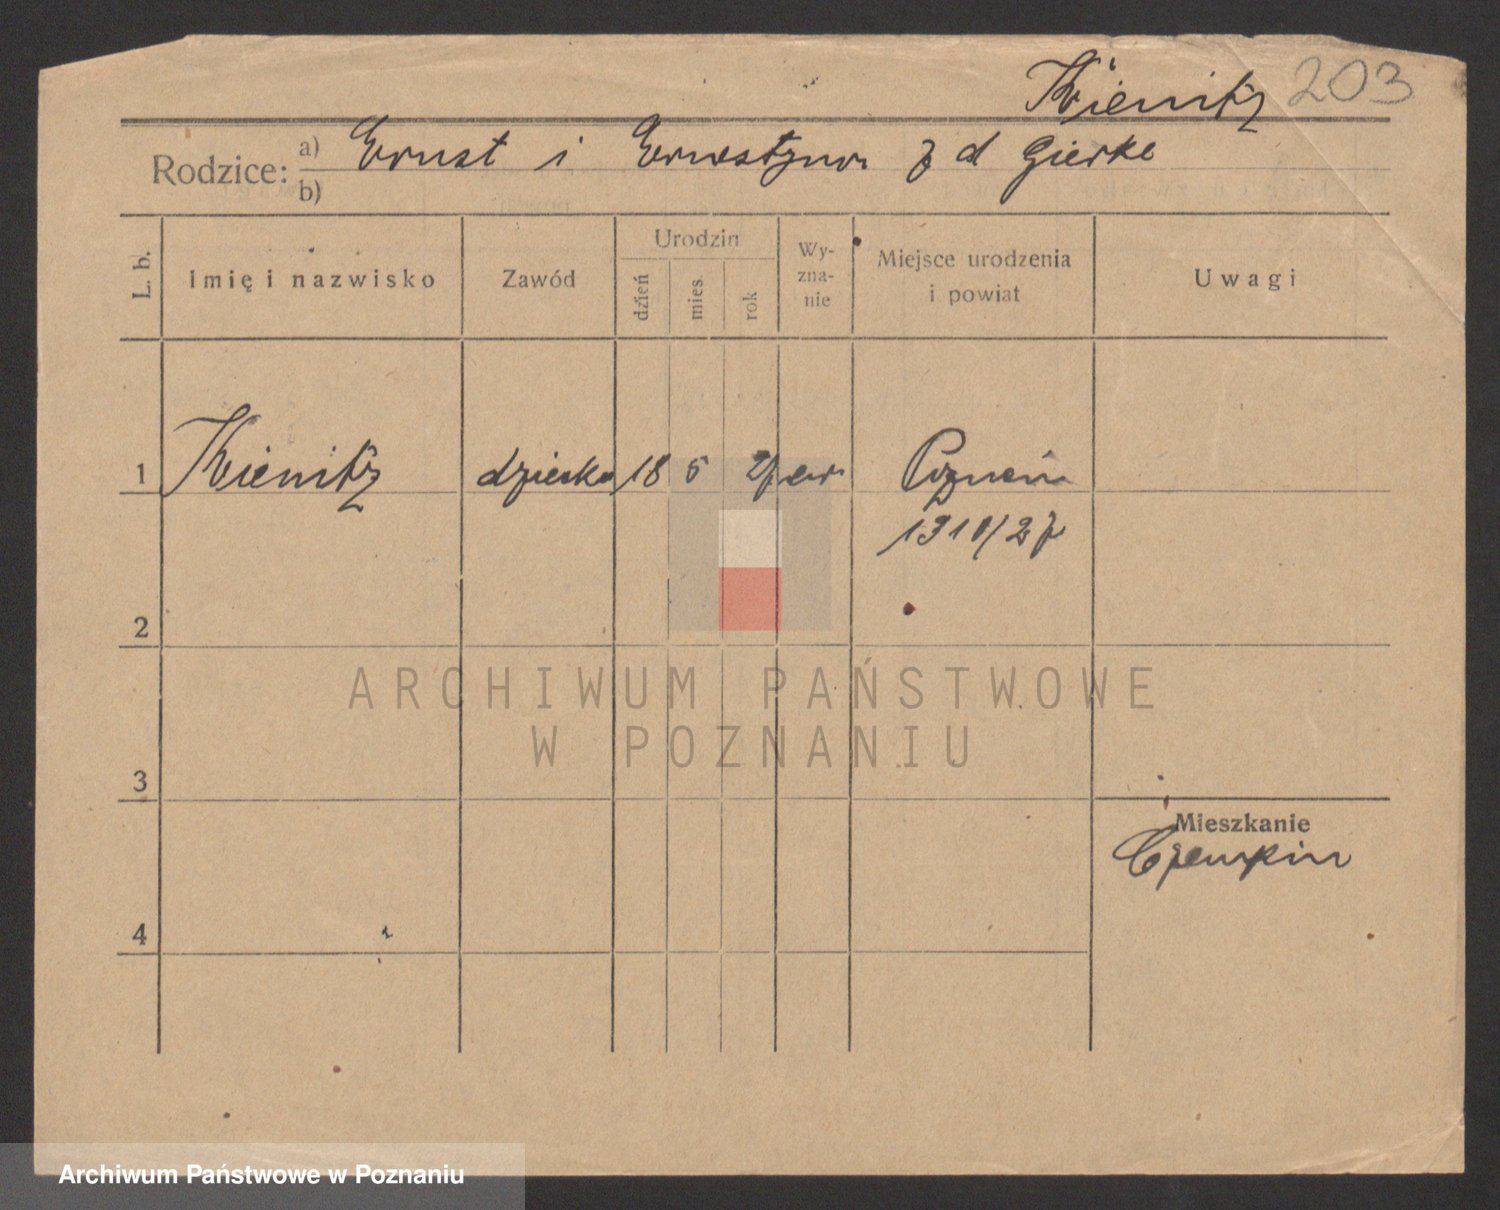 Kienitz 203
Rodzice: a) Ernst i Ernestyna z d Gierke
b)
L. b.
Imię i nazwisko
Zawód
Urodzin
dzień
mies.
rok
Wy-
zna-
nie
Miejsce urodzenia
i powiat
Uwagi
1 Kienitz dziecko 18 5 27 ew Poznań
1310/27
2
ARCHIWUM PAŃSTWOWE
W POZNANIU
3
Mieszkanie
4
Archiwum Państwowe w Poznaniu